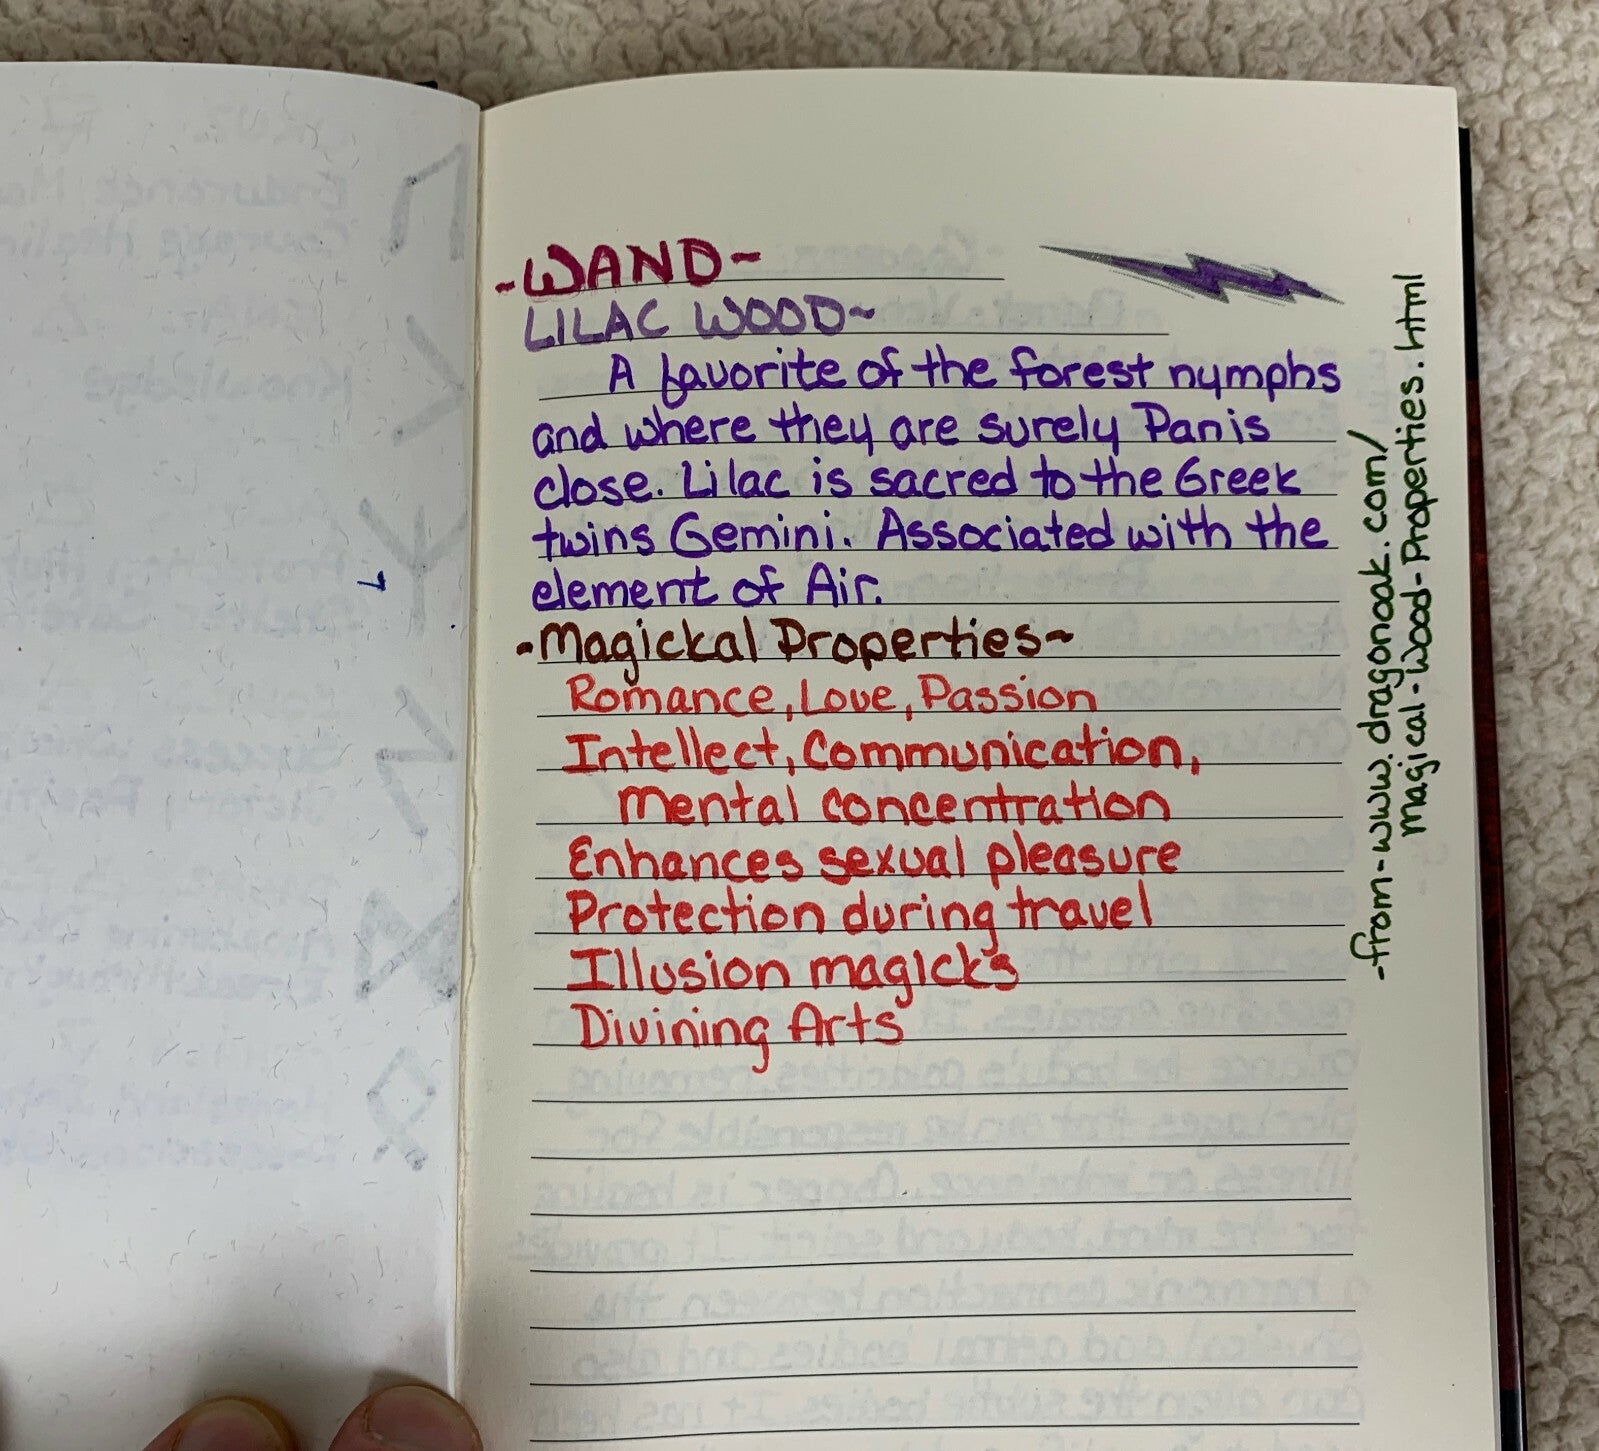 -WAND~
LILAC WOOD~
A favorite of the forest nymphs
and where they are surely Pan is
close. Lilac is sacred to the Greek
twins Gemini. Associated with the
element of Air.
-Magickal Properties~
Romance, Love, Passion
Intellect, Communication,
mental concentration
Enhances sexual pleasure
Protection during travel
Illusion magicks
Divining Arts
-from-www.dragonoak.com/
magical-wood-Properties.html